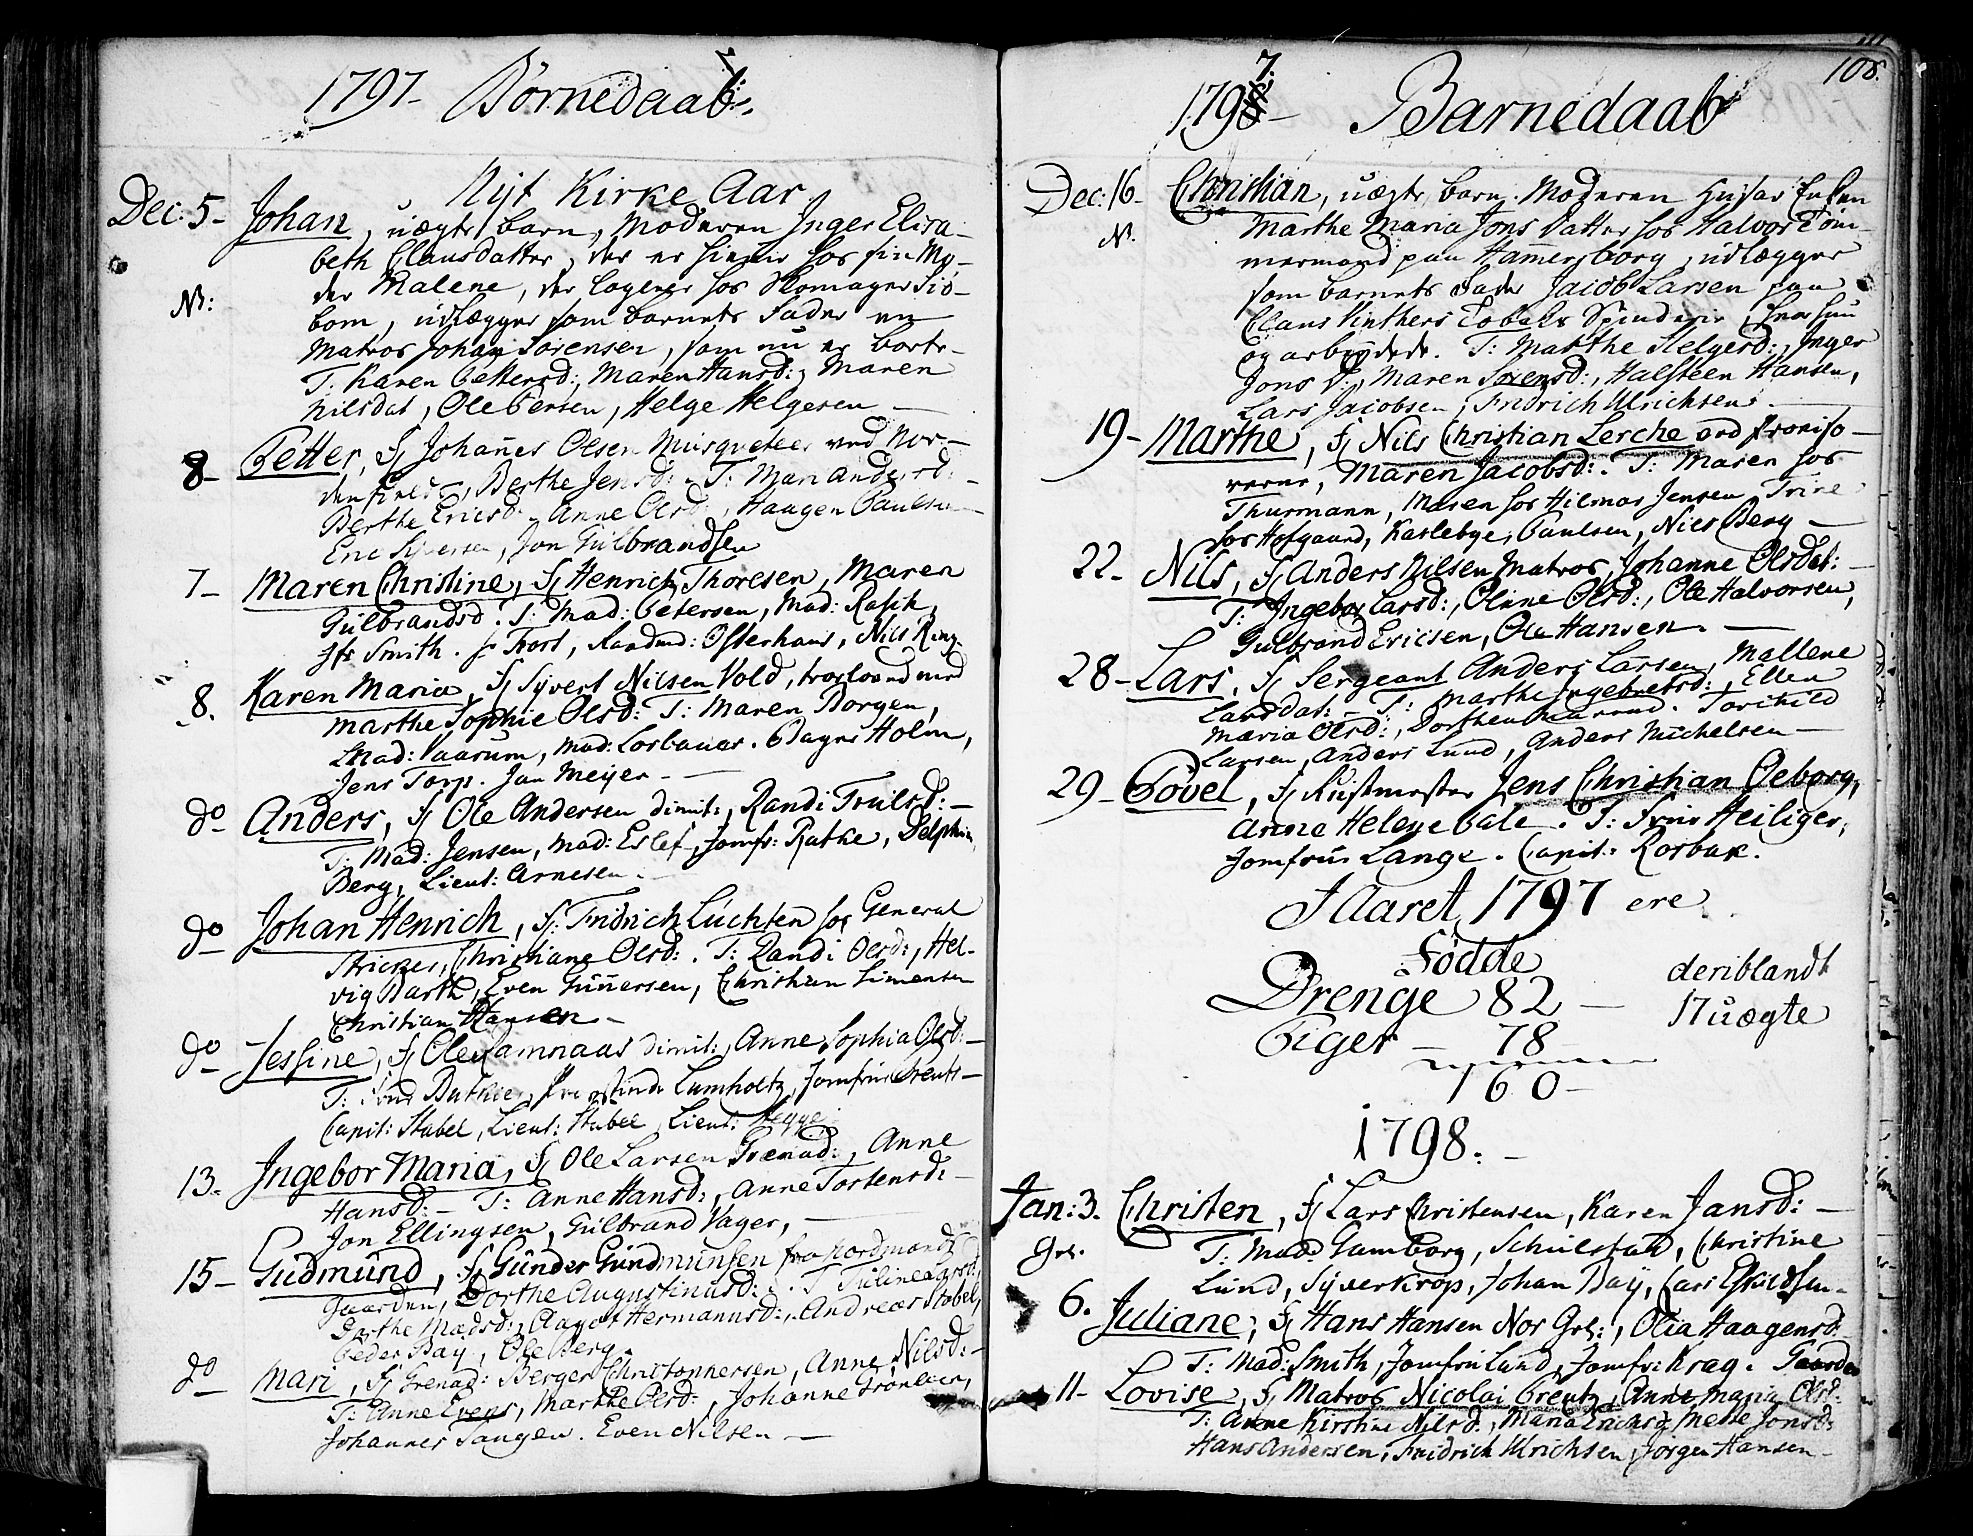 1797- Børnedaab.
Nyt Kirke Aar
Dec: 5- Johan, uægte barn, Moderen Inger Elisa-
beth Clausdatter, der er hos sin Mo-
der Malene, der logerer hos Skomager
NB:
bom, udlægger som barnets Fader en
Matros Johan Sørensen, som nu er borte-
T: Karen Pettersd:, Maren Hansd:, Maren
Nilsdat, Ole Persen, Helge Helgesen -
8- Petter, F: Johañes Olsen Musqueteer ved Nor-
denfield:, Berthe Jensd: - T: Mari Andersd:
Berthe Ericsd:, Anne Olsd:, Haagen Paulsen
Eric Syversen, Jon Gulbrandsen
7- Maren Christine, F: Henrich Thoresen, Maren
Gulbrandsd. T: Mad: Petersen, Mad: Rasch,
Jfr Smith. Hr Frost, Osterhaus, Nils Ring.
8. Karen Maria, F: Syvert Nilsen Vold,
Marthe Sophie Olsd: T: Maren Borgen,
Mad: Vaarum, Mad: Holm,
Jens Torp. Jan Meyer -
do Anders, F: Ole Andersen dimit:, Randi Trulsd: -
T: Mad: Jensen, Mad: Jomfr: Rathe, Delphin
Berg, Lieut: Arnesen -
do Johan Henrich, F: Fridrich Lüchten hos General
Stricker, Christiane Olsd:. T: Randi Olsd:, Hel-
vig Barth, Even Guñersen, Christian Simensen
Christian Hansen -
do Jessine, F: Ole Samnaas dimit:, Anne Sophia Olsd: -
T: Lumholtz, Jomfru
Capit: Stabel, Lieut: Stabel, Lieut: Hegge.
13. Ingebor Maria, F: Ole Larsen Grenad:, Anne
Hansd: - T: Anne Hansd:, Anne Torstensd: -
Jon Ellingsen, Gulbrand Vager, -
15- Gudmund, F: Gunder Gundmunsen fra Nordmands
Gaarden, Dorthe Augustinusd: . T:
Dorthe Madsd:, Aagot Hermannsd:, Andreas Stabel,
Peder Bay, Ole Berg.
do Mari, F: Grenad: Berger Christophersen, Anne Nilsd: -
T: Anne Evens, Marthe Olsd:, Johanne Grønbeck,
Johannes Taugen. Even Nilsen -
108.
1797- Barnedaab
Dec: 16- Christian, uægte barn. Moderen Husar Enken
NB.
Marthe Maria Jons Datter hos Halvor Tøm-
mermand paa Ham̃ersborg, udlægger
som barnets Fader Jacob Larsen paa
Claus Vinthers Tobaks Spinderie, hvor hun
og arbejdede. T: Marthe Helgesd:, Inger
Jons D:, Maren Sørensd:, Halsteen Hansen,
Lars Jacobsen, Fridrich Ulrichsens. -
19- Marthe, F: Nils Christian Lerche ved
Maren Jacobsd:. T: Maren hos
Thurmann, Maren hos Hilmar Jensen, Trine
hos Hofgaard, Karlebye, Paulsen, Nils Berg -
22- Nils, F: Anders Nilsen Matros, Johanne Olsdat: -
T: Ingebor Larsd:, Olinne Olsd:, Ole Halvorsen,
Gulbrand Ericsen, Ole Hansen. -
28- Lars, F: Sergeant Anders Larsen, Mallene
Larsdat: - T: Marthe Ingebretsd:, Ellen
Maria Olsd:, Torchild
Larsen, Anders Lund, Anders Michelsen -
29- Povel, F: Rustmester Jens Christian Oeborg,
Anne Helene Pale. T: Frue Heiliger,
Jomfru Lange. Capit: Rosbak.
I Aaret 1797 ere
Fødde
Drenge 82 - deriblandt
Piger - 78 17 uægte
160-
1798. -
Jan: 3. Christen, F: Lars Christensen, Karen Jansd: -
Grl.
T: Mad: Gamborg, Schulstad, Christine
Lund, Syverkrop, Johan Bay, Lars Eskildsen.
6. Juliane, F: Hans Hansen Nor Grl:, Olia Haagensd:
T: Mad: Smith, Jomfru Lund, Jomfr: Krag.
11- Lovise, F: Matros Nicolai Creutz, Anne Maria Olsd:
T: Anne Kirstine Nilsd:, Maria Ericksd:, Mette Jonsd:
Hans Andersen, Fridrich Ulrichsen, Jørgen Hansen -